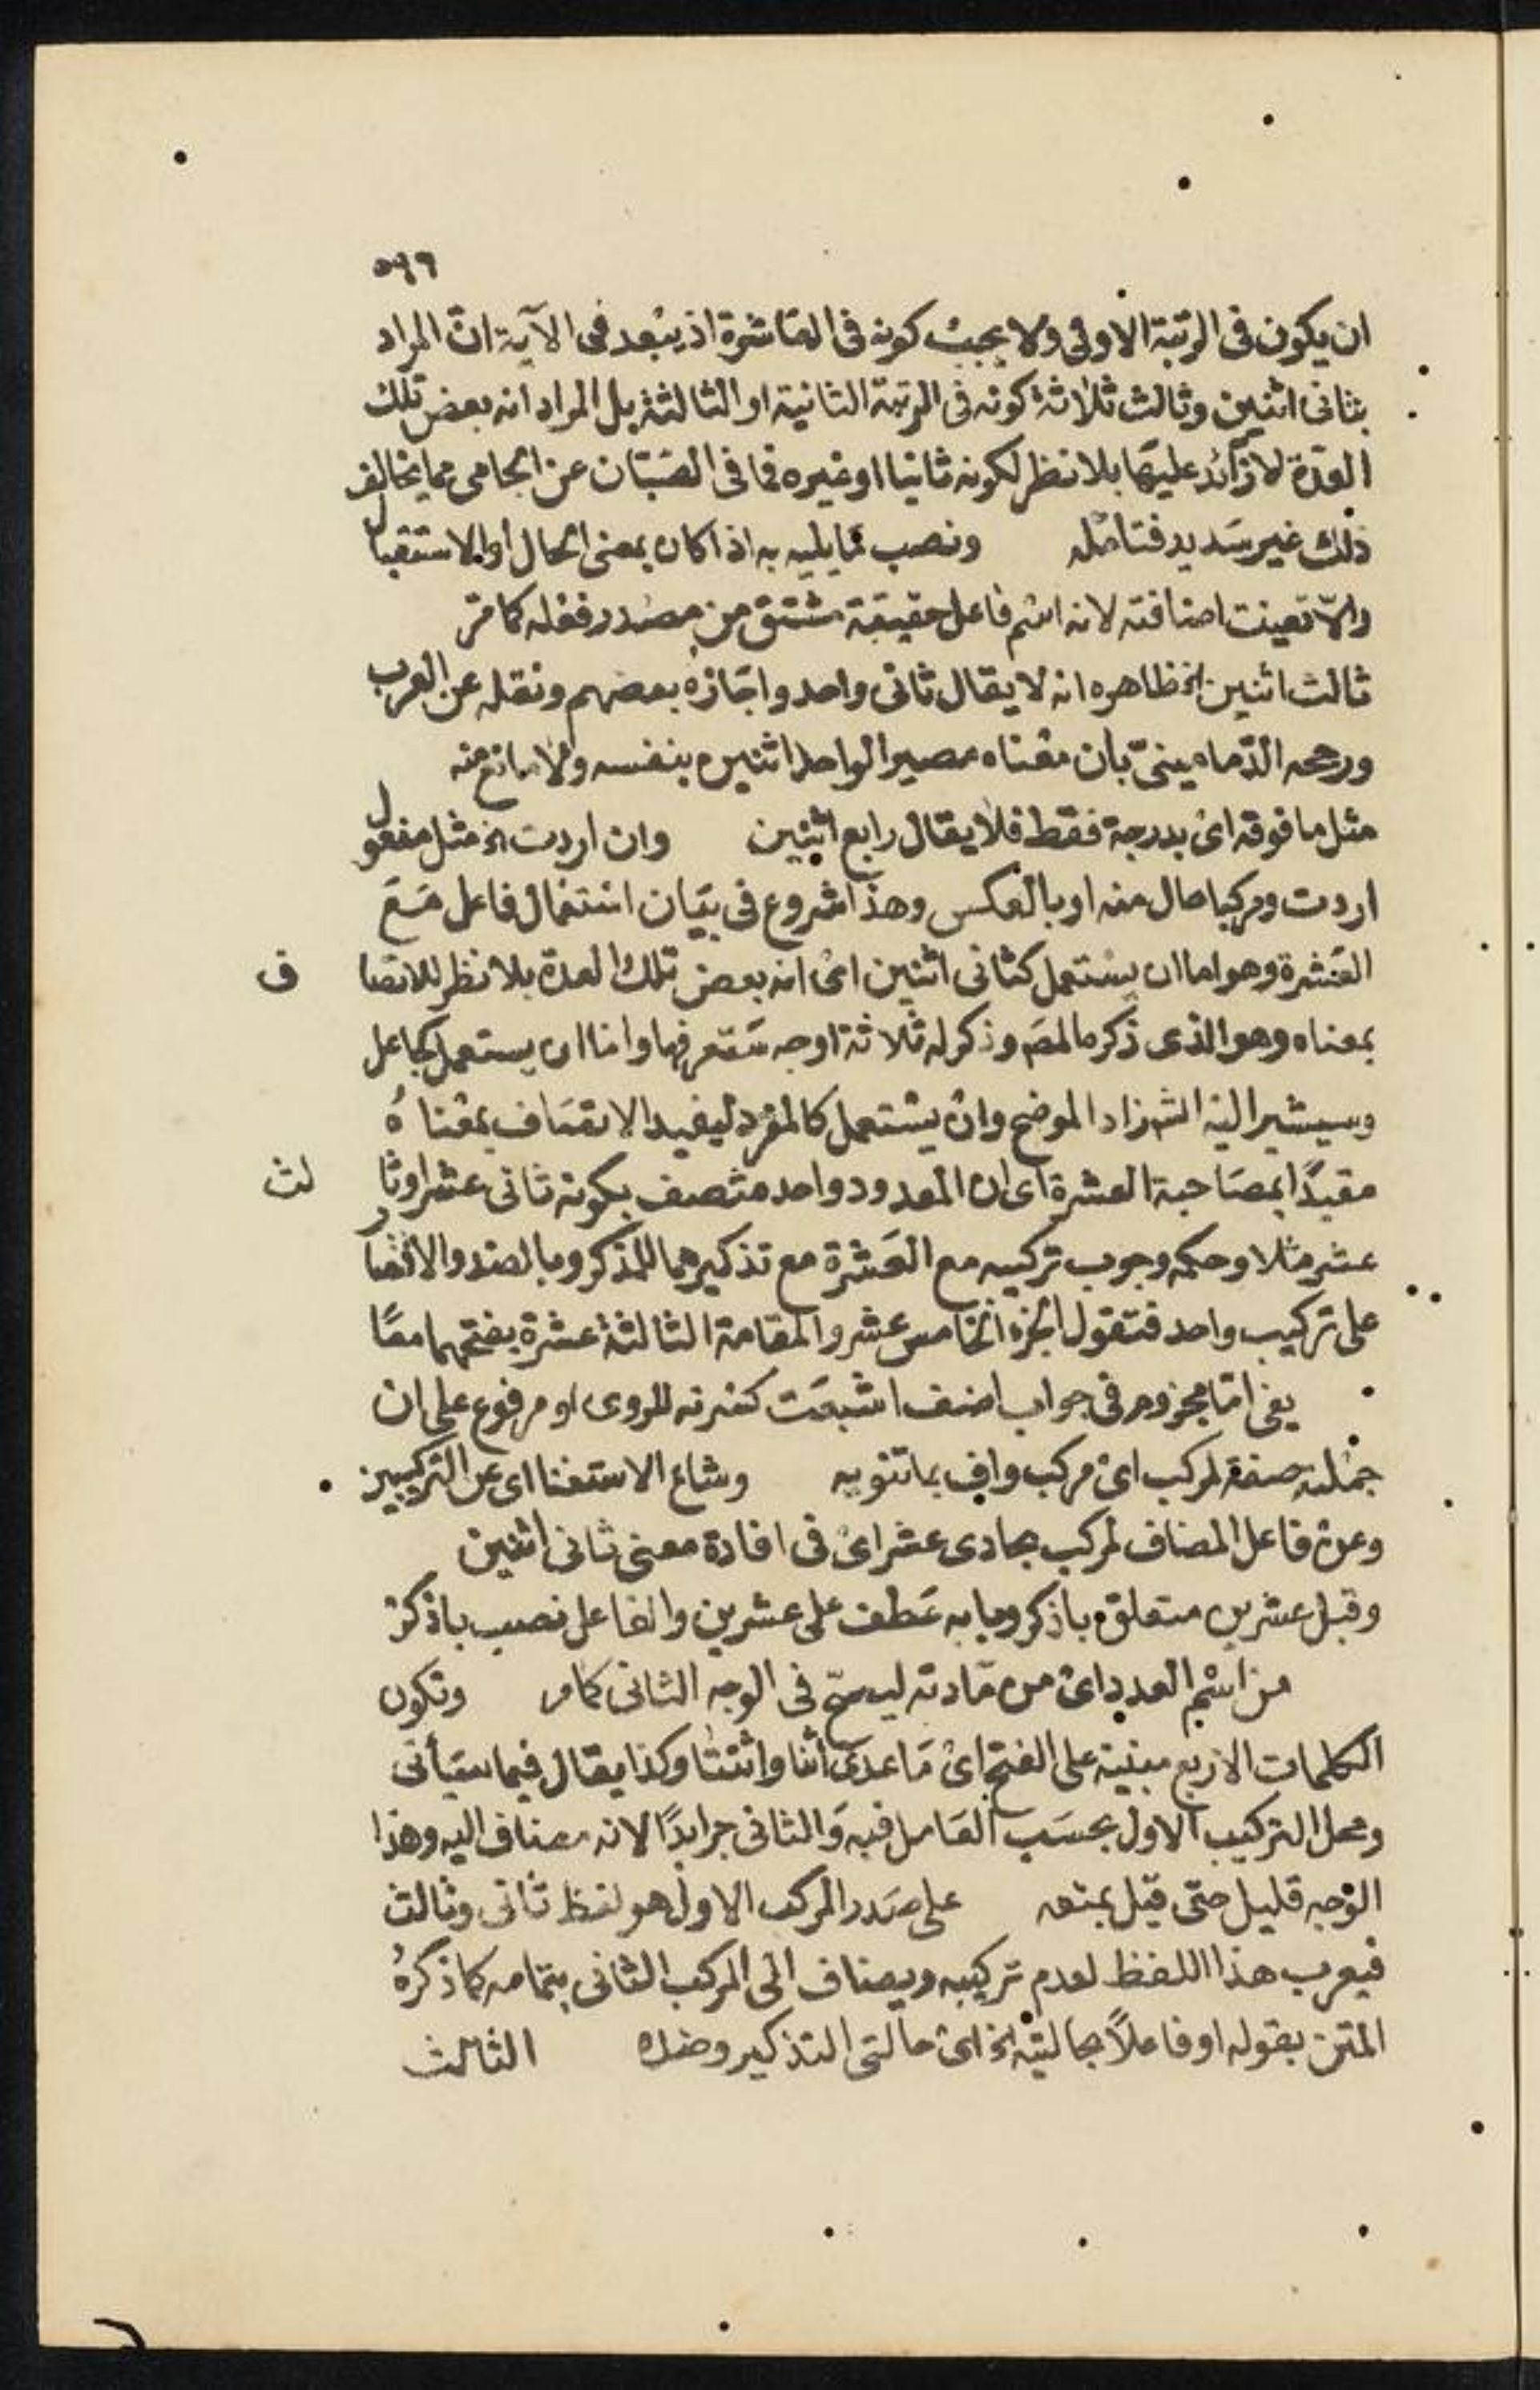 ٥٩٦
ان يكون فى الرتبة الاولى ولا يجب كونه فى العاشرة اذ يبعد فى الآية ان المراد
بثانى اثنين وثالث ثلاثة كونه فى الرتبة الثانية او الثالثة بل المراد انه بعض تلك
العدة لا زائد عليها بلا نظر لكونه ثانيا او غيره فما فى الصبان عن الجامى مما يخالف
ذلك غير سديد فتأمله ونصب ما يليه به اذا كان بمعنى الحال او الاستقبال
والا تعينت اضافته لانه اسم فاعل حقيقة مشتق من مصدر فعله كما مر
ثالث اثنين الخ ظاهره انه لا يقال ثانى واحد واجازه بعضهم ونقله عن العرب
ورجحه الدمامينىّ بأن معناه مصير الواحد اثنين بنفسه ولا مانع منه
مثل ما فوقه اى بدرجة فقط فلا يقال رابع اثنين وان اردت الخ مثل مفعول
اردت ومركبا حال منه او بالعكس وهذا شروع فى بيان استعمال فاعل مع
العشرة وهو اما ان يستعمل كثانى اثنين اى انه بعض تلك العدة بلا نظر للاتصاف
بمعناه وهو الذى ذكره المصَ وذكر له ثلاثة اوجه ستعرفها واما ان يستعمل كجاعل
وسيشير اليه الشَ زاد الموضح وان يستعمل كالمفرد ليفيد الاتصاف بمعناهُ
مقيدًا بمصاحبة العشرة اى ان المعدود واحد متصف بكونه ثانى عشر او ثالث
عشر مثلا وحكمه وجوب تركيبه مع العشرة مع تذكيرهما للمذكر وبالضد والاقتصار
على تركيب واحد فتقول الجزء الخامس عشر والمقامة الثالثة عشرة بفتحهما معًا
يفى اما مجزوم فى جواب اضف اشبعت كسرته للروى او مرفوع على ان
جملته صفة لمركب اى مركب واف بما تنويه وشاع الاستغنا اى عن التركيبين
وعن فاعل المضاف لمركب بحادى عشر اى فى افادة معنى ثانى اثنين
وقبل عشرين متعلق باذكر وبابه عطف على عشرين والفاعل نصب باذكر
من اسم العدد اى من مادته ليصح فى الوجه الثانى كما مر وتكون
الكلمات الاربع مبنية على الفتح اى ما عدى اثنا واثنتا وكذا يقال فيما سيأتى
ومحل التركيب الاول بحسب العامل فيه والثانى جر ابدًا لانه مضاف اليه وهذا
الوجه قليل حتى قيل بمنعه على صدر المركب الاول هو لفظ ثانى وثالث
فيعرب هذا اللفظ لعدم تركيبه ويضاف الى المركب الثانى بتمامه كما ذكرهُ
المتن بقوله او فاعلاً بحالتيه الخ اى حالتى التذكير وضده الثالث